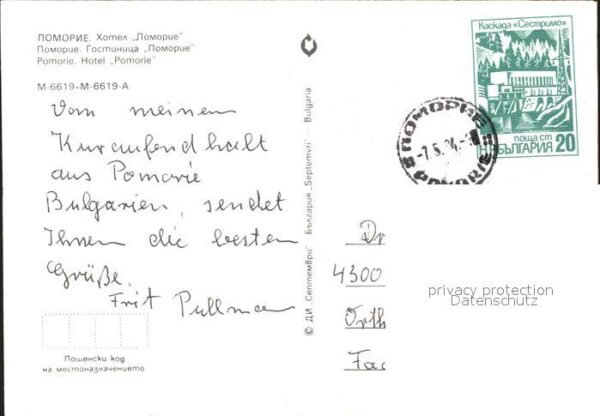 ПОМОРИЕ. Хотел „Поморие"
Поморие. Гостиница „Поморие"
Pomorie. Hotel „Pomorie"
М-6619-М-6619-А
Vom meinem
Kuraufendhalt
aus Pomorie
Bulgarien, sendet
Ihnen die besten
Grüße.
Frit Pullman
Пощенски код
на местоназначението
© ДИ „Септември" България „Septemvri" – Bulgaria
Каскада «Сестримо»
поща ст
НР БЪЛГАРИЯ 20
ПОМОРИЕ
POMORIE
Dr
4300
Orth
Fac
privacy protection
Datenschutz